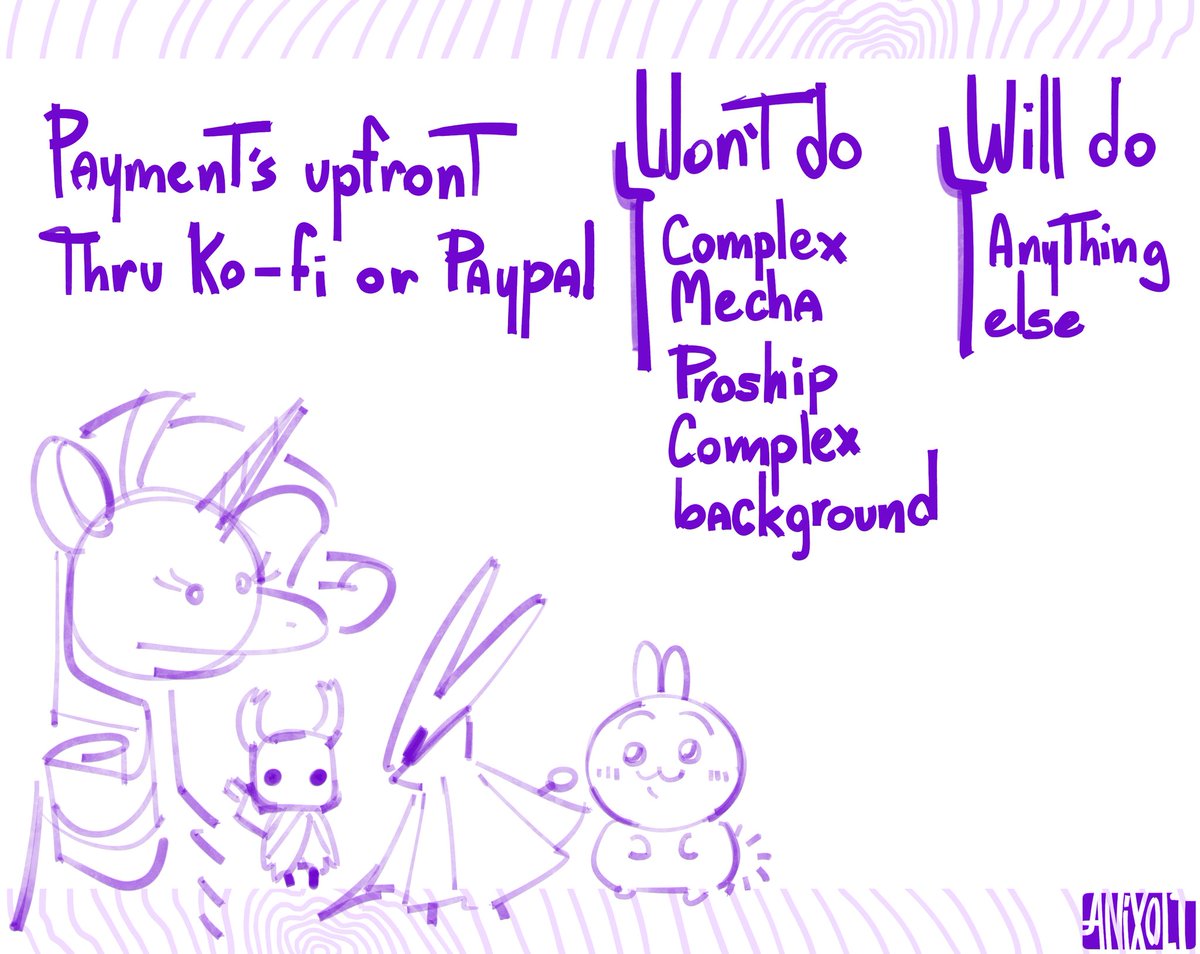 Payment's upfront
Thru Ko-fi or Paypal
Won't do
Complex
Mecha
Proship
Complex
background
Will do
Anything
else
ANiXOLT